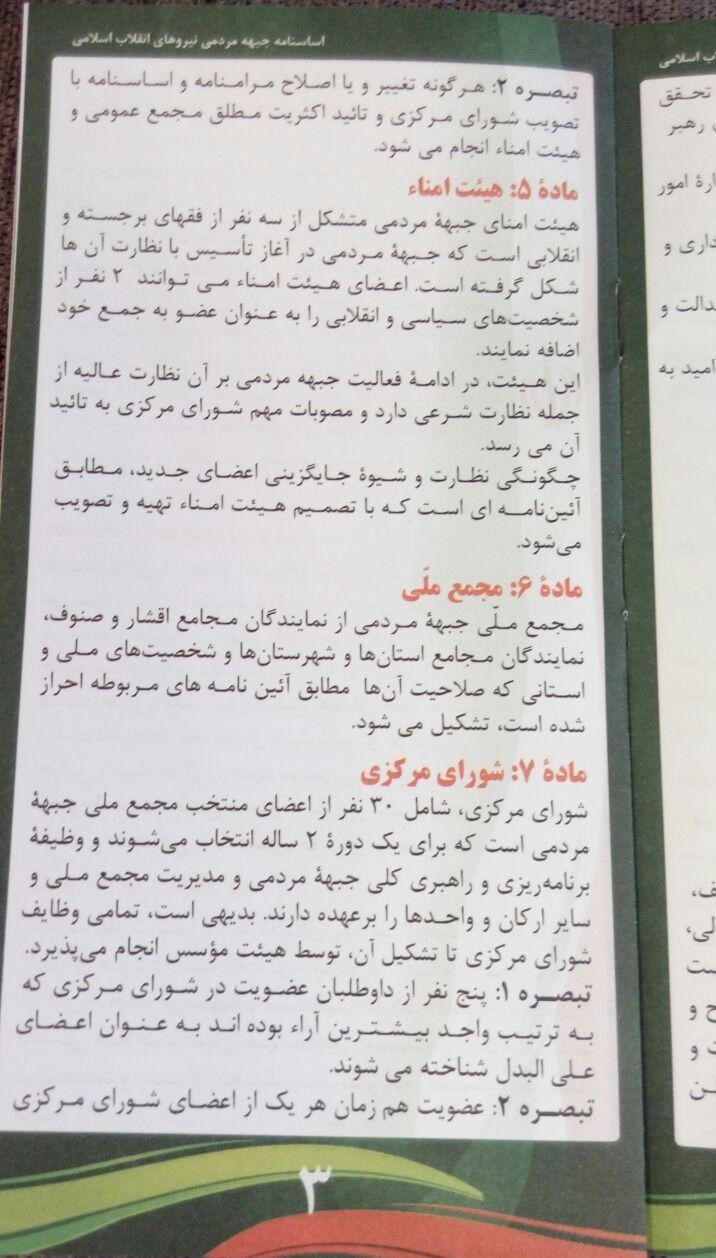 اساسنامه جبهه مردمی نیروهای انقلاب اسلامی
تبصره ۲: هرگونه تغییر و یا اصلاح مرامنامه و اساسنامه با
تصویب شورای مرکزی و تائید اکثریت مطلق مجمع عمومی و
هیئت امناء انجام می شود.
مادۀ ۵: هیئت امناء
هیئت امنای جبهۀ مردمی متشکل از سه نفر از فقهای برجسته و
انقلابی است که جبهۀ مردمی در آغاز تأسیس با نظارت آن ها
شکل گرفته است. اعضای هیئت امناء می توانند ۲ نفر از
شخصیت‌های سیاسی و انقلابی را به عنوان عضو به جمع خود
اضافه نمایند.
این هیئت، در ادامۀ فعالیت جبهه مردمی بر آن نظارت عالیه از
جمله نظارت شرعی دارد و مصوبات مهم شورای مرکزی به تائید
آن می رسد.
چگونگی نظارت و شیوۀ جایگزینی اعضای جدید، مطابق
آئین‌نامه ای است که با تصمیم هیئت امناء تهیه و تصویب
می‌شود.
مادۀ ۶: مجمع ملّی
مجمع ملّی جبهۀ مردمی از نمایندگان مجامع اقشار و صنوف،
نمایندگان مجامع استان‌ها و شهرستان‌ها و شخصیت‌های ملی و
استانی که صلاحیت آن‌ها مطابق آئین نامه های مربوطه احراز
شده است، تشکیل می شود.
مادۀ ۷: شورای مرکزی
شورای مرکزی، شامل ۳۰ نفر از اعضای منتخب مجمع ملی جبهۀ
مردمی است که برای یک دورۀ ۲ ساله انتخاب می‌شوند و وظیفۀ
برنامه‌ریزی و راهبری کلی جبهۀ مردمی و مدیریت مجمع ملی و
سایر ارکان و واحدها را برعهده دارند. بدیهی است، تمامی وظایف
شورای مرکزی تا تشکیل آن، توسط هیئت مؤسس انجام می‌پذیرد.
تبصره ۱: پنج نفر از داوطلبان عضویت در شورای مرکزی که
به ترتیب واجد بیشترین آراء بوده اند به عنوان اعضای
علی البدل شناخته می شوند.
تبصره ۲: عضویت هم زمان هر یک از اعضای شورای مرکزی
۳
اسلامی
تحقق
رهبر
امور
و
و
امید به
و
و